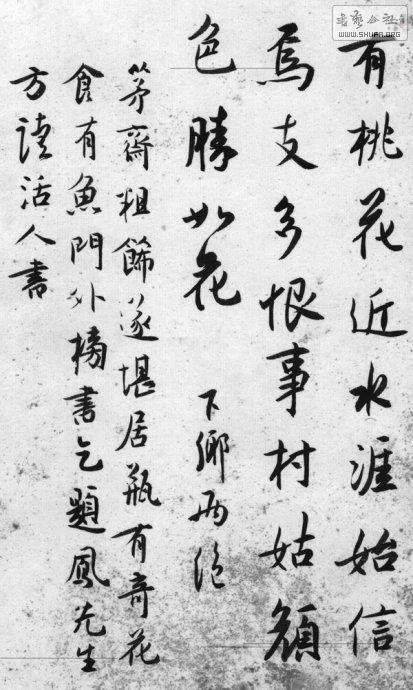 有桃花近水涯始信
焉支多恨事村姑顏
色勝如花 下鄉兩絕
茅齋粗飾遂堪居瓶有奇花
食有魚門外榜書乞題鳳先生
方讀活人書
公社
WWW.SHUFA.ORG